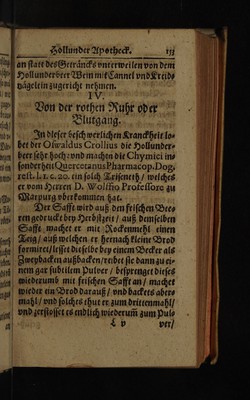 Hollunder Apotheck. 153
an statt des Geträncks unterweilen von dem
Hollunderbeer Wein mit Cannel und Kreids
nägelein zugericht nehmen.
IV.
Von der rothen Ruhr oder
Blutgang.
In dieser beschwerlichen Kranckheit lo-
bet der Oswaldus Crollius die Hollunder-
beer sehr hoch: und machen die Chymici in-
sonderheit Quercetanus Pharmacop. Dog.
restit. l. 1. c. 20. ein solch Triseneth / welches
er vom Herren D. Wolffio Professore zu
Marpurg oberkommen hat.
Der Safft wird auß den frischen Bee-
ren gedruckt bey Herbstzeit / auß demselben
Safft machet er mit Rockenmehl einen
Teig / auß welchen er hernach kleine Brod
formiret / lesset dieselbe bey einem Becker als
Zweybacken außbacken / reibet sie dann zu ei-
nem gar subtilem Pulver / besprenget dieses
wiederumb mit frischen Safft an / machet
wieder ein Brod darauß / und backets aber-
mahl / und solches thut er zum drittenmahl /
und zerstosset es endlich wiederum̃ zum Pul-
L v ver /